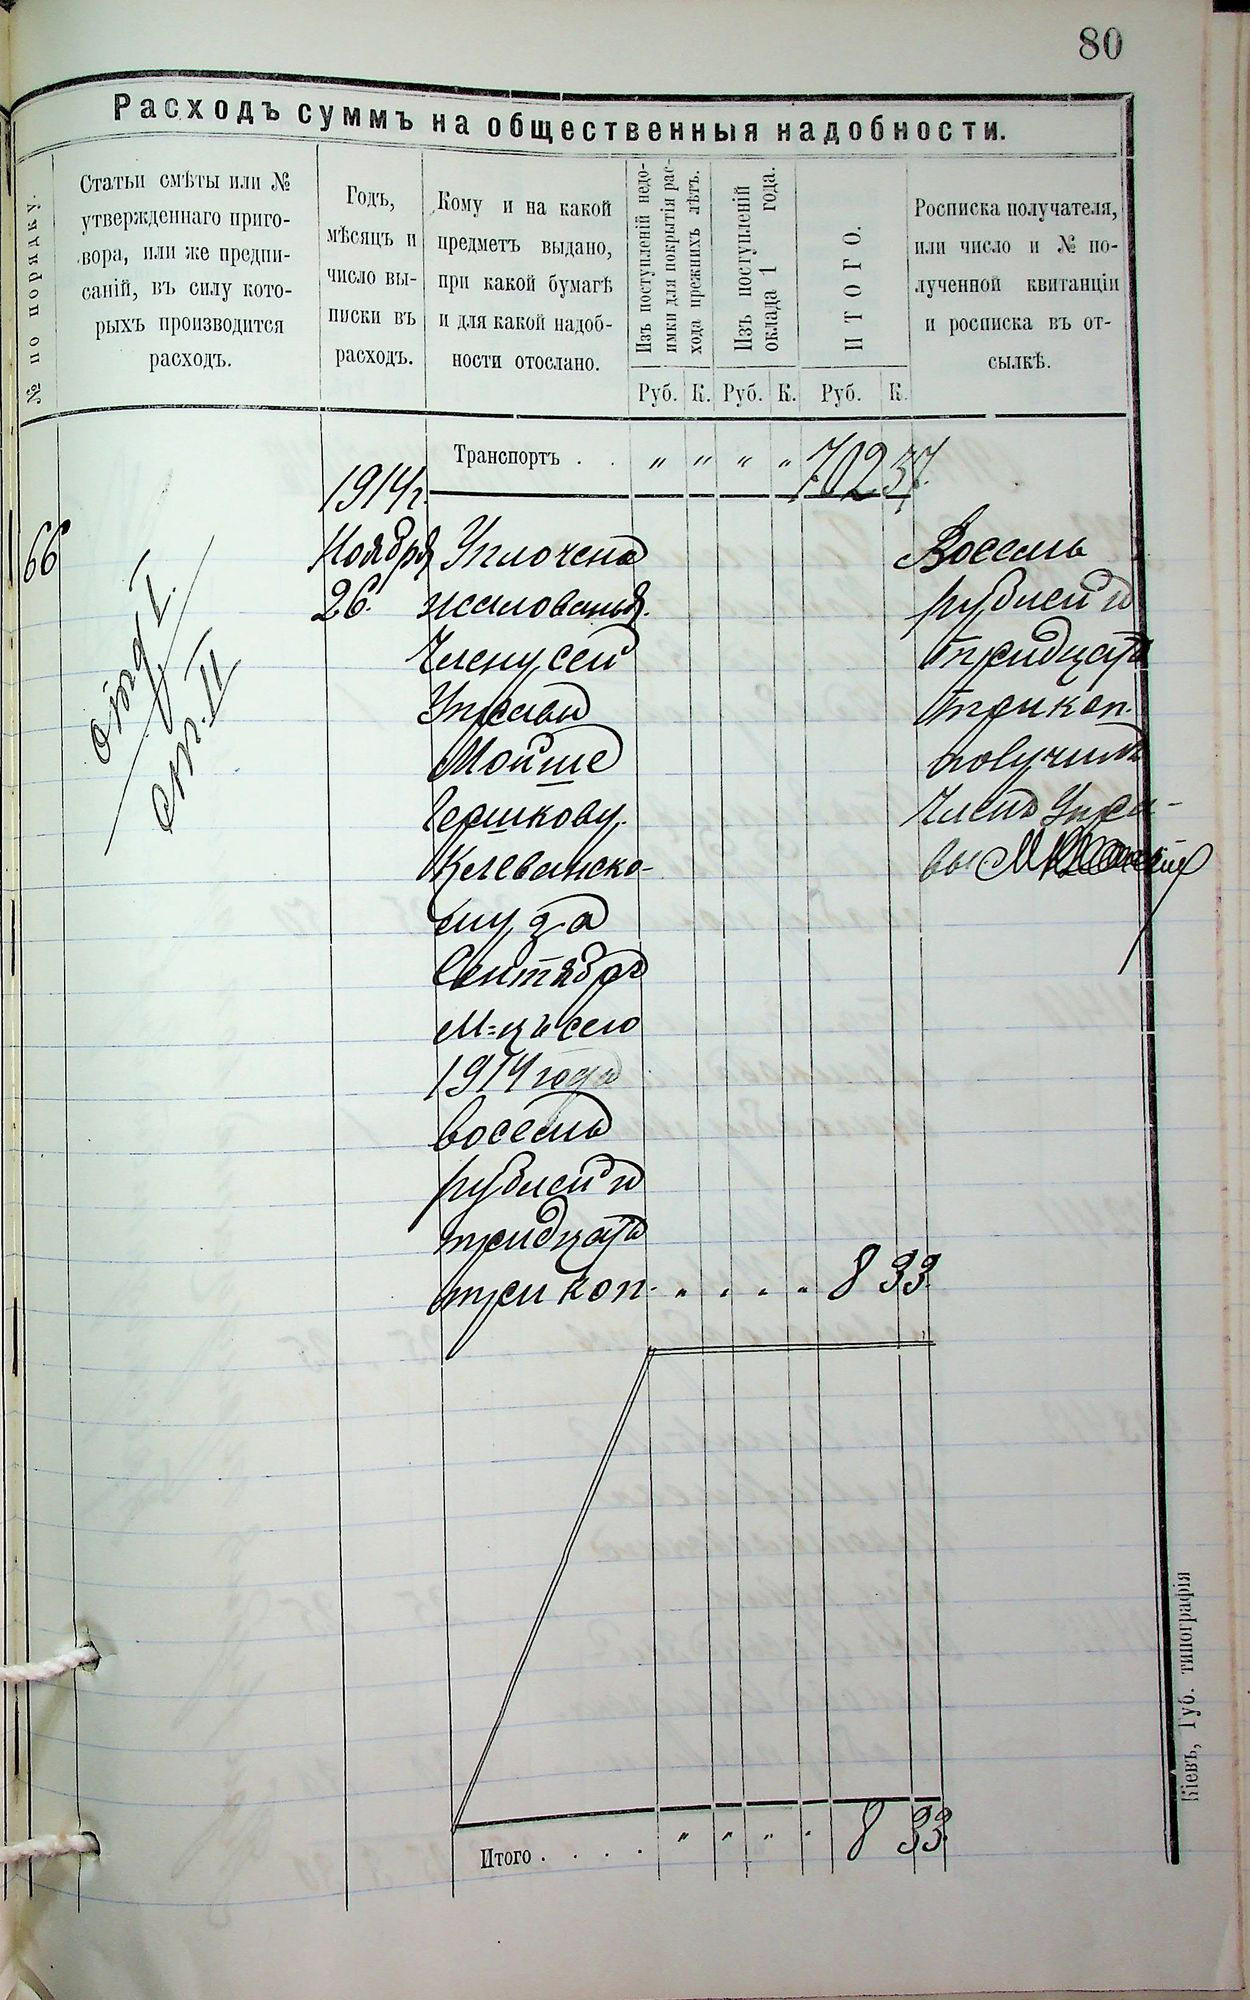 80
Расходъ суммъ на общественныя надобности.
№ по порядку.
Статьи смѣты или №
утвержденнаго приго-
вора, или же предпи-
саній, въ силу кото-
рыхъ производится
расходъ.
Годъ,
мѣсяцъ и
число вы-
писки въ
расходъ.
Кому и на какой
предметъ выдано,
при какой бумагѣ
и для какой надоб-
ности отослано.
Изъ поступленій недо-
имки для покрытія рас-
хода прежнихъ лѣтъ.
Изъ поступленій
оклада 1 года.
ИТОГО.
Росписка получателя,
или число и № по-
лученной квитанціи
и росписка въ от-
сылкѣ.
Руб. К. Руб. К. Руб. К.
Транспортъ . . „ „ „ „ 702 37.
66
отд I.
ст. II
1914 г.
Ноября
26.
Уплочено
жалованья
Члену сей
Управы
Мойше
Гершкову
Клеванско-
му за
Сентябрь
м=цъ сего
1914 года
восемь
рублей и
тридцать
три коп. „ „ „ „ 8 33.
Восемь
рублей и
тридцать
три коп.
получилъ
Членъ Упра-
вы
Итого . . . . „ „ „ „ 8 33.
Кіевъ, Губ. типографія